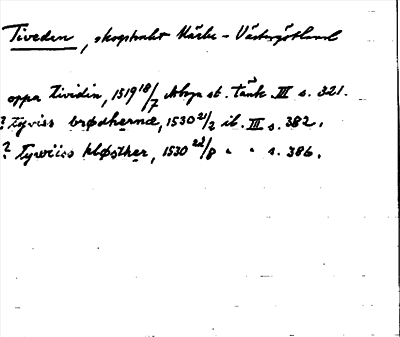 Tiveden, skogstrakt Närke - Västergötland
oppa Tividin, 1519 18/7 st. tänk. III s. 321.
? Tyviss brødherna, 1530 21/2 ib. III s. 382.
? Tywiiss kløsther, 1530 22/8 " " s. 386.